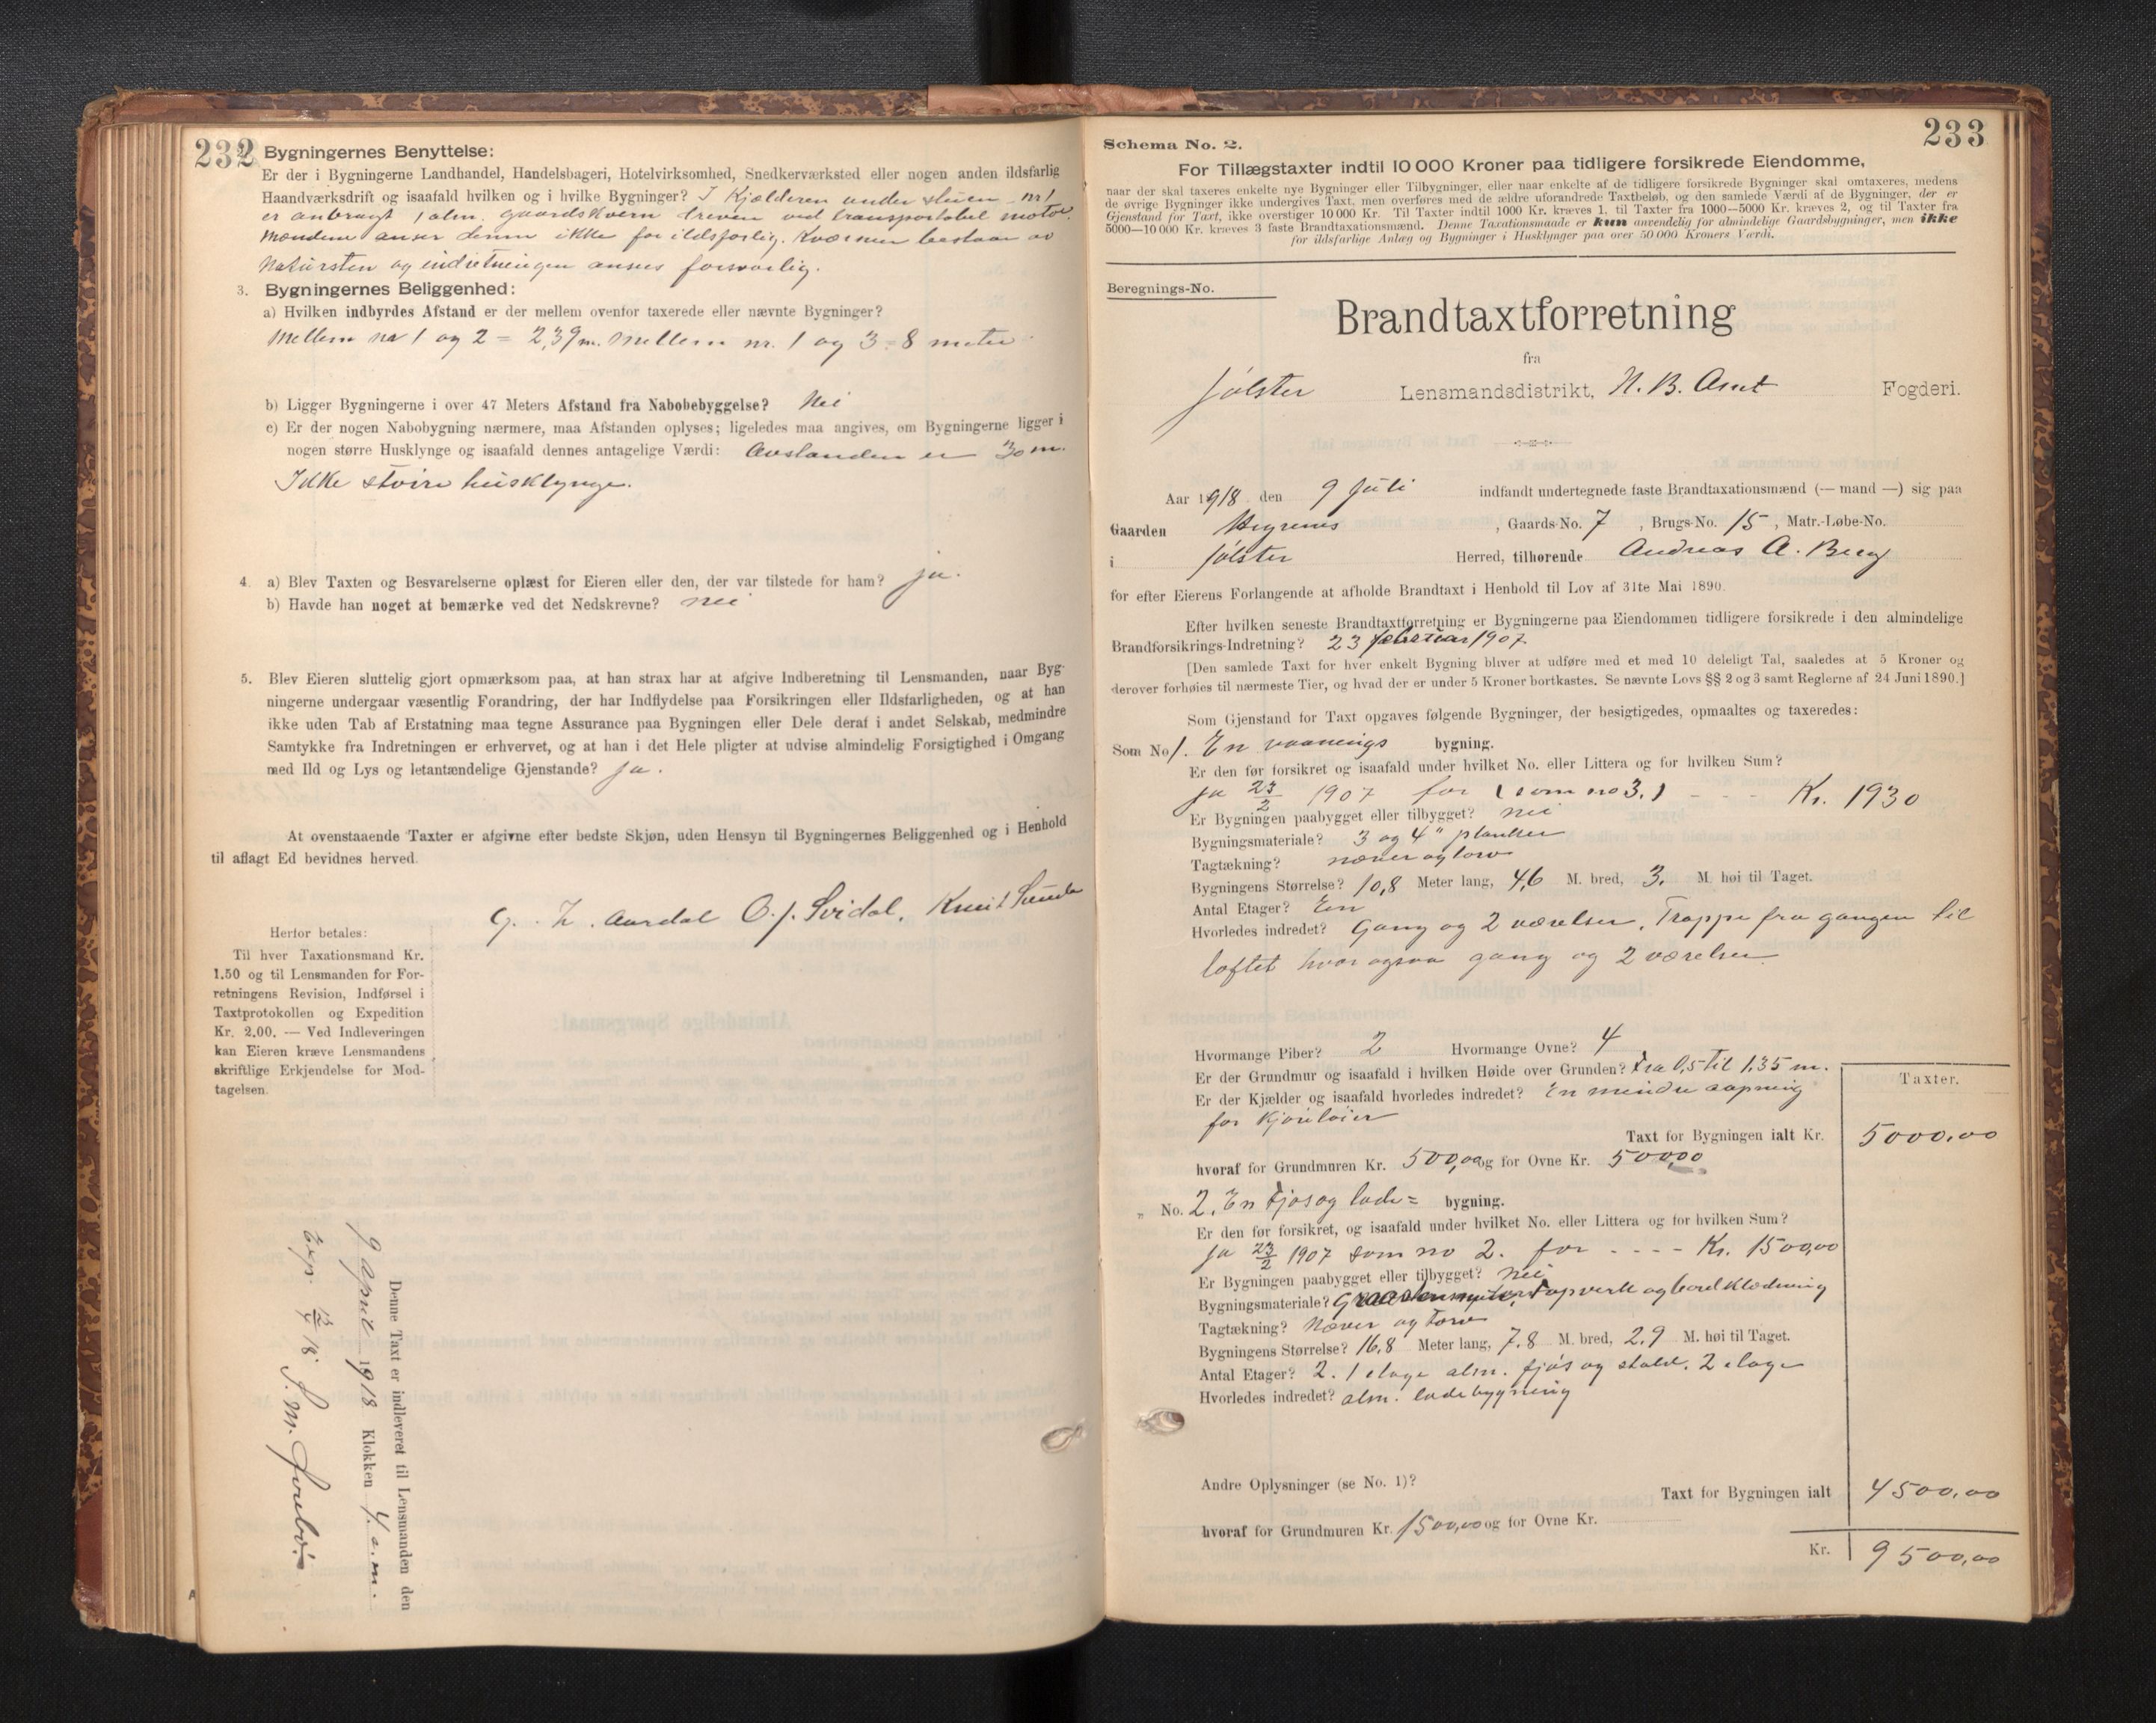 232
2. Bygningernes Benyttelse:
Er der i Bygningerne Landhandel, Handelsbageri, Hotelvirksomhed, Snedkerværksted eller nogen anden ildsfarlig
Haandværksdrift og isaafald hvilken og i hvilke Bygninger? I Kjælderen under stuen nr 1
er anbragt 1 alm. gaardskvern dreven ved transportabel motor.
Mændene anser denne ikke for ildsfarlig. Kværnen bestaar av
Natursten og indretningen ansees forsvarlig.
3. Bygningernes Beliggenhed:
a) Hvilken indbyrdes Afstand er der mellem ovenfor taxerede eller nævnte Bygninger?
Mellem nr 1 og 2 = 2,39 m. Mellem nr. 1 og 3 = 8 meter
b) Ligger Bygningerne i over 47 Meters Afstand fra Nabobebyggelse? Nei
c) Er der nogen Nabobygning nærmere, maa Afstanden oplyses; ligeledes maa angives, om Bygningerne ligger i
nogen større Husklynge og isaafald dennes antagelige Værdi: Avstanden er 30 m.
Ikke større husklynge.
4. a) Blev Taxten og Besvarelserne oplæst for Eieren eller den, der var tilstede for ham? ja.
b) Havde han noget at bemærke ved det Nedskrevne? nei
5. Blev Eieren sluttelig gjort opmærksom paa, at han strax har at afgive Indberetning til Lensmanden, naar Byg-
ningerne undergaar væsentlig Forandring, der har Indflydelse paa Forsikringen eller Ildsfarligheden, og at han
ikke uden Tab af Erstatning maa tegne Assurance paa Bygningen eller Dele deraf i andet Selskab, medmindre
Samtykke fra Indretningen er erhvervet, og at han i det Hele pligter at udvise almindelig Forsigtighed i Omgang
med Ild og Lys og letantændelige Gjenstande? ja.
At ovenstaaende Taxter er afgivne efter bedste Skjøn, uden Hensyn til Bygningernes Beliggenhed og i Henhold
til aflagt Ed bevidnes herved.
G. Z. Aardal O. J. Svidal. Knut Sunde
Herfor betales:
Til hver Taxationsmand Kr.
1.50 og til Lensmanden for For-
retningens Revision, Indførsel i
Taxtprotokollen og Expedition
Kr. 2.00. — Ved Indleveringen
kan Eieren kræve Lensmandens
skriftlige Erkjendelse for Mod-
tagelsen.
Denne Taxt er indleveret til Lensmanden den
9 april 1918 Klokken 4 e. m.
S. M. Førebø
233
Schema No. 2.
For Tillægstaxter indtil 10 000 Kroner paa tidligere forsikrede Eiendomme,
naar der skal taxeres enkelte nye Bygninger eller Tilbygninger, eller naar enkelte af de tidligere forsikrede Bygninger skal omtaxeres, medens
de øvrige Bygninger ikke undergives Taxt, men overføres med de ældre uforandrede Taxtbeløb, og den samlede Værdi af de Bygninger, der er
Gjenstand for Taxt, ikke overstiger 10 000 Kr. Til Taxter indtil 1000 Kr. kræves 1, til Taxter fra 1000—5000 Kr. kræves 2, og til Taxter fra
5000—10 000 Kr. kræves 3 faste Brandtaxationsmænd. Denne Taxationsmaade er kun anvendelig for almindelige Gaardsbygninger, men ikke
for ildsfarlige Anlæg og Bygninger i Husklynger paa over 50 000 Kroners Værdi.
Beregnings-No.
Brandtaxtforretning
fra
Jølster Lensmandsdistrikt, N. B. Amt Fogderi.
Aar 1918 den 9 Juli indfandt undertegnede faste Brandtaxationsmænd (— mand —) sig paa
Gaarden Hegrenes, Gaards-No. 7, Brugs-No. 15, Matr.-Løbe-No.
i Jølster Herred, tilhørende Andreas A. Berg
for efter Eierens Forlangende at afholde Brandtaxt i Henhold til Lov af 31te Mai 1890.
Efter hvilken seneste Brandtaxtforretning er Bygningerne paa Eiendommen tidligere forsikrede i den almindelige
Brandforsikrings-Indretning? 23 februar 1907
[Den samlede Taxt for hver enkelt Bygning bliver at udføre med et med 10 deleligt Tal, saaledes at 5 Kroner og
derover forhøies til nærmeste Tier, og hvad der er under 5 Kroner bortkastes. Se nævnte Lovs §§ 2 og 3 samt Reglerne af 24 Juni 1890.]
Som Gjenstand for Taxt opgaves følgende Bygninger, der besigtigedes, opmaaltes og taxeredes:
Som No 1. En vaanings bygning.
Er den før forsikret og isaafald under hvilket No. eller Littera og for hvilken Sum?
ja 23/2 1907 for (som no 3.) - - - Kr. 1930
Er Bygningen paabygget eller tilbygget? nei
Bygningsmateriale? 3 og 4" planker
Tagtækning? næver og torv
Bygningens Størrelse? 10,8 Meter lang, 4,6 M. bred, 3. M. høi til Taget.
Antal Etager? En
Hvorledes indredet? Gang og 2 værelser. Trappe fra gangen til
loftet hvor ogsaa gang og 2 værelser
Hvormange Piber? 2 Hvormange Ovne? 4
Er der Grundmur og isaafald i hvilken Høide over Grunden? Fra 0,5 til 1,35 m.
Er der Kjælder og isaafald hvorledes indredet? En mindre aapning
for kjøreløier
Taxter.
Taxt for Bygningen ialt Kr. 5000,00
hvoraf for Grundmuren Kr. 500,00 og for Ovne Kr. 500,00
„ No. 2. En Fjøs og lade= bygning.
Er den før forsikret, og isaafald under hvilket No. eller Littera og for hvilken Sum?
ja 23/2 1907 som no 2. for - - - - Kr. 1500,00
Er Bygningen paabygget eller tilbygget? nei
Bygningsmateriale? Graastensmur, Stapverk og bordklædning
Tagtækning? Næver og Torv
Bygningens Størrelse? 16,8 Meter lang, 7,8 M. bred, 2,9 M. høi til Taget.
Antal Etager? 2. 1 etage alm. fjøs og stald. 2 etage
Hvorledes indredet? alm. ladebygning
Andre Oplysninger (se No. 1)?
Taxt for Bygningen ialt 4500,00
hvoraf for Grundmuren Kr. 1500,00 og for Ovne Kr.
Kr. 9500,00